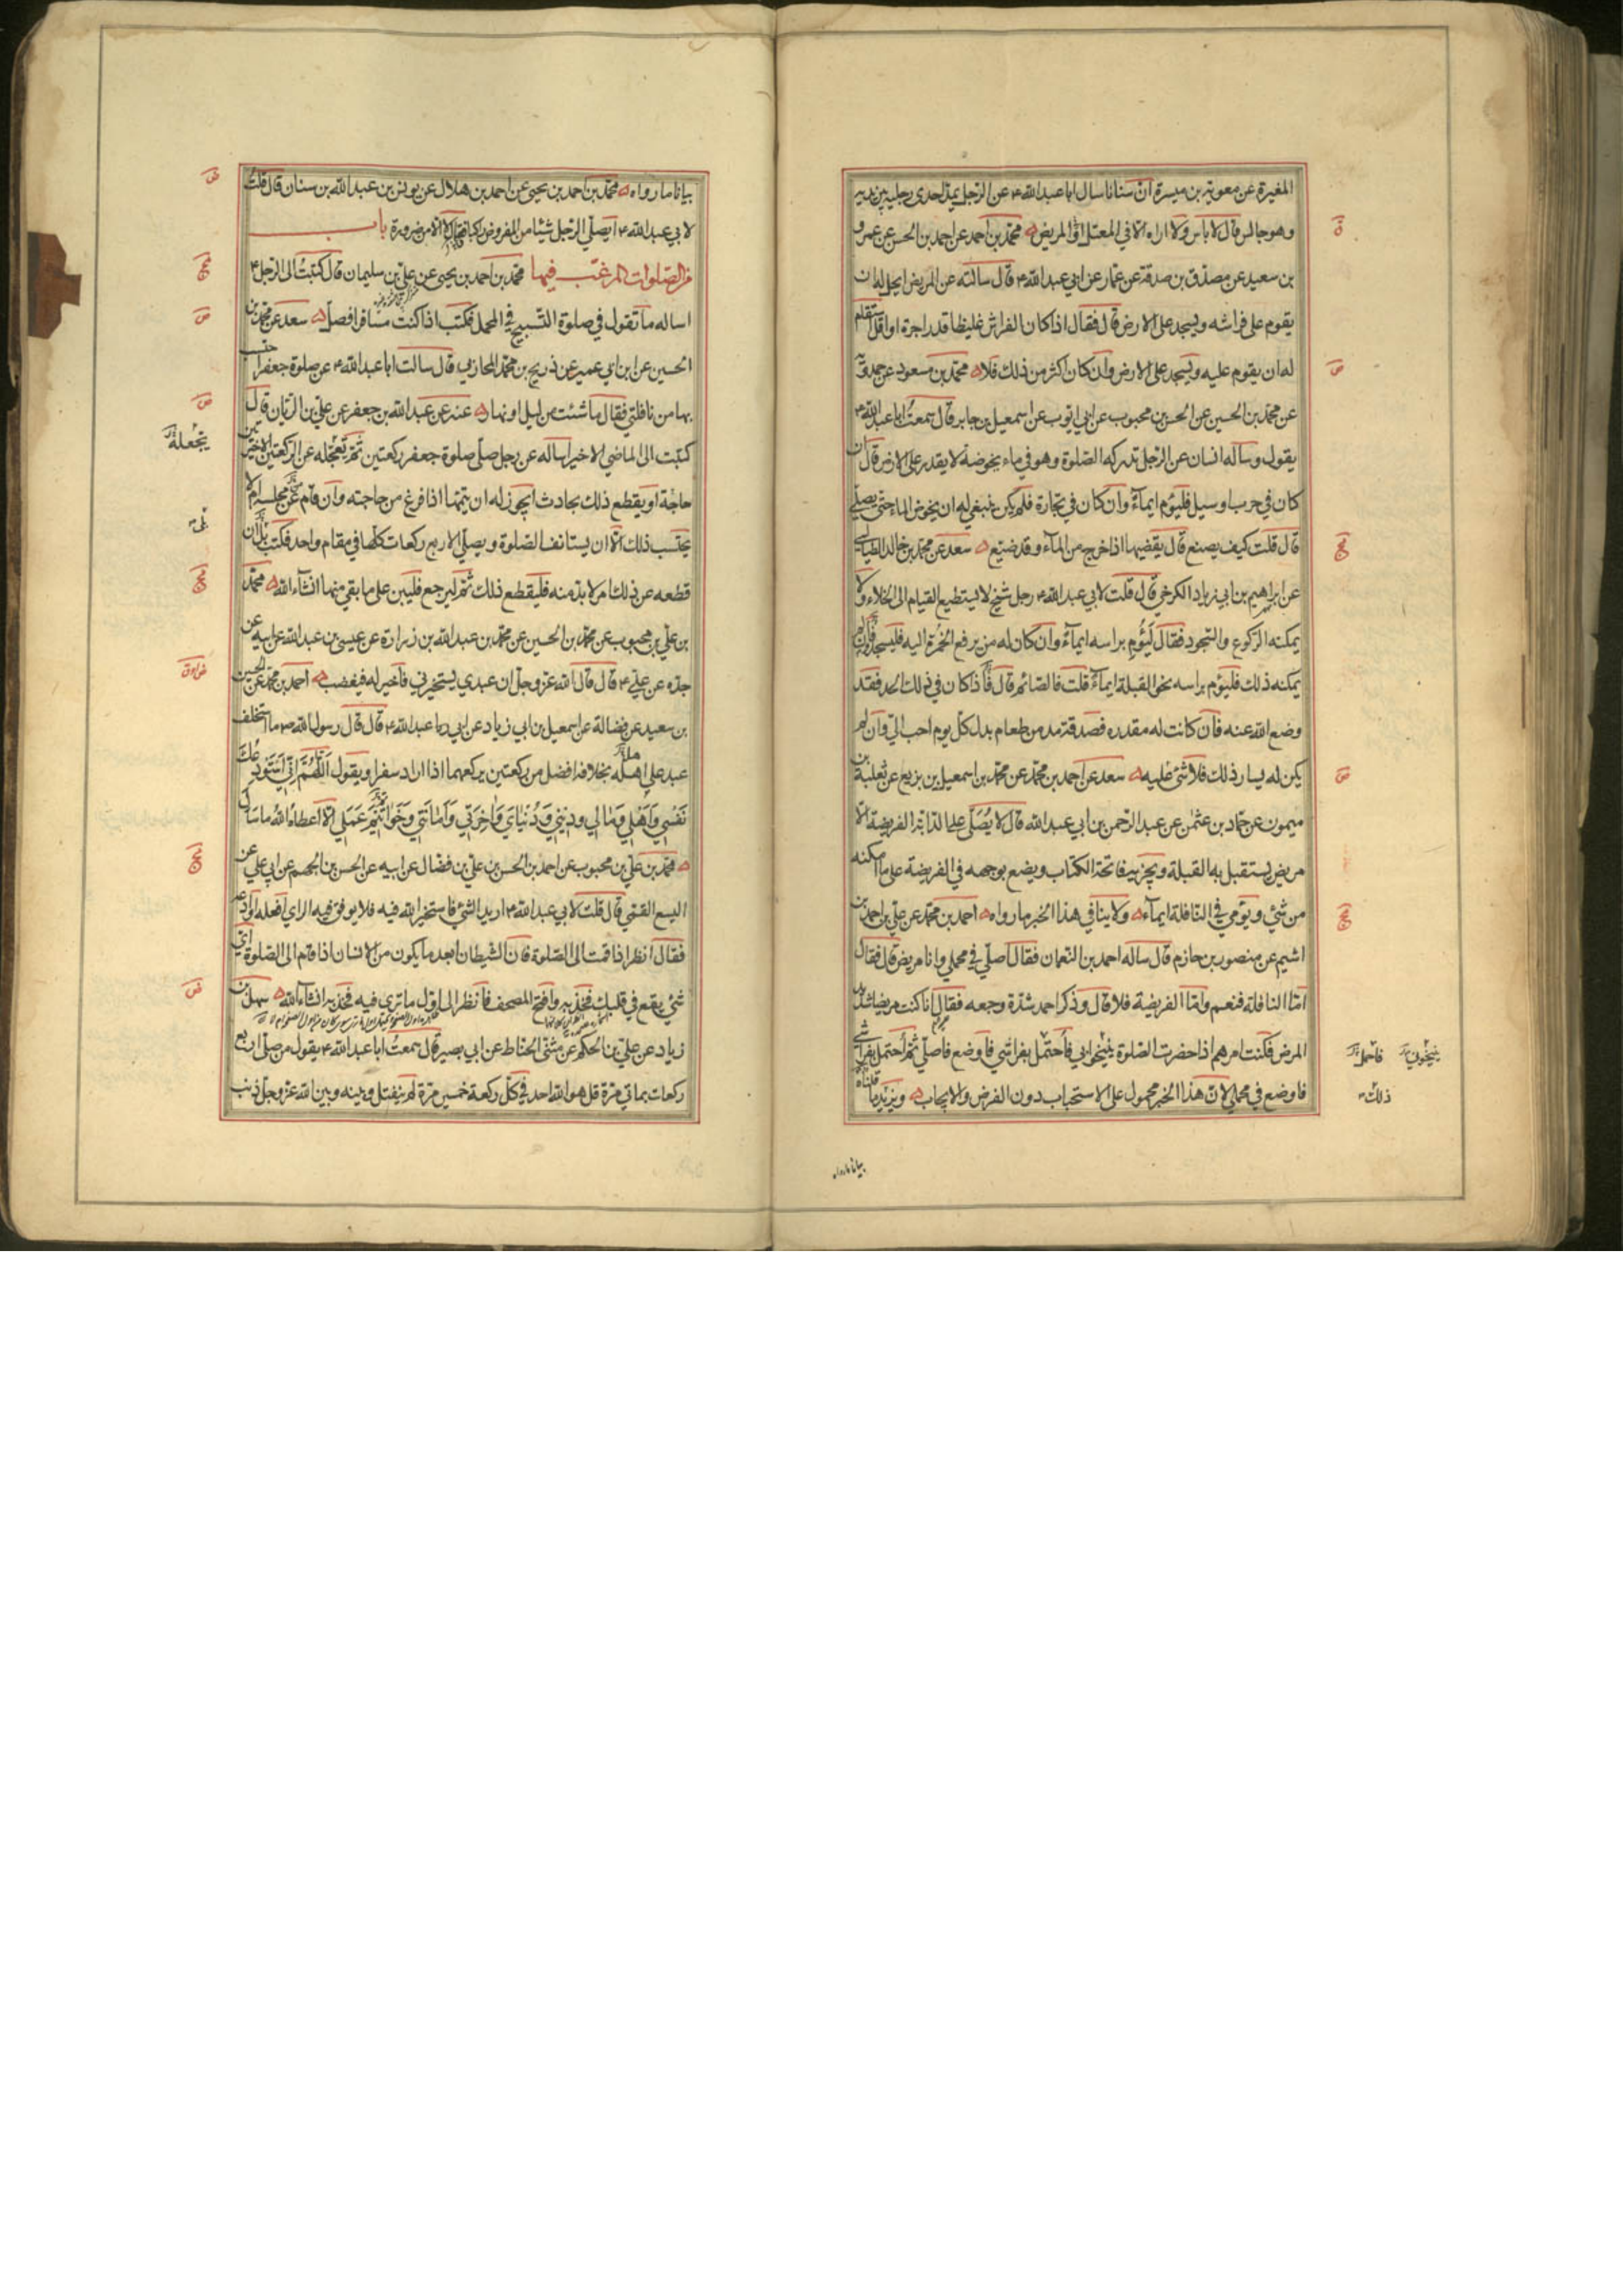 المغيرة عن معوية بن ميسرة ان سنانا سال ابا عبدالله ع عن الرجل يمد احدى رجليه بين يديه
وهو جالس قال لا باس ولا اراه الا في المعتل او المريض محمد بن احمد عن احمد بن الحسن عن عمرو
بن سعيد عن مصدق بن صدقة عن عمار عن ابي عبدالله ع قال سالته عن المريض ايحل له ان
يقوم على فراشه ويسجد على الارض قال فقال اذا كان الفراش غليظا قدر اجرة او اقل استقام
له ان يقوم عليه ويسجد على الارض وان كان اكثر من ذلك فلا محمد بن مسعود عن حمدويه
عن محمد بن الحسين عن الحسن بن محبوب عن ابي ايوب عن اسمعيل بن جابر قال سمعت ابا عبدالله ع
يقول وساله انسان عن الرجل تدركه الصلوة وهو في ماء يخوضه لا يقدر على الارض قال ان
كان في حرب او سبيل فليؤم ايماء وان كان في تجارة فلم يكن ينبغي له ان يخوض الماء حتى يصلي
قال قلت كيف يصنع قال يقضيها اذا خرج من الماء وقد ضيع سعد عن محمد بن خالد الطيالسي
عن ابراهيم بن ابي زياد الكرخي قال قلت لابي عبدالله ع رجل شيخ لا يستطيع القيام الى الخلاء ولا
يمكنه الركوع والسجود فقال ليؤم براسه ايماء وان كان له من يرفع الخمرة اليه فليسجد فان لم
يمكنه ذلك فليؤم براسه نحو القبلة ايماء قلت فالصائم قال فاذا كان في ذلك الحد فقد
وضع الله عنه فان كانت له مقدرة فصدقة مد من طعام بدل كل يوم احب الي وان لم
يكن له يسار ذلك فلا شئ عليه سعد عن احمد بن محمد عن محمد بن اسمعيل بن بزيع عن ثعلبة بن
ميمون عن حماد بن عثمن عن عبد الرحمن بن ابي عبدالله قال لا يصلى على الدابة الفريضة الا
مريض يستقبل به القبلة ويجزيه فاتحة الكتاب ويضع بوجهه في الفريضة على ما امكنه
من شئ ويومي في النافلة ايماء ولا ينافي هذا الخبر ما رواه احمد بن محمد عن علي بن احمد بن
اشيم عن منصور بن حازم قال ساله احمد بن النعمان فقال اصلي في محملي وانا مريض قال فقال
اما النافلة فنعم واما الفريضة فلا قال وذكر احمد شدة وجعه فقال انا كنت مريضا شديد
المرض فكنت امرهم اذا حضرت الصلوة ينيخوا بي فاحتمل بفراشي فاوضع فاصلي ثم احتمل بفراشي
فاوضع في محملي لان هذا الخبر محمول على الاستحباب دون الفرض والايجاب ويزيد ما قلناه
ينيخوني
فاحمل
ذلك
بيانا ما رواه
بيانا ما رواه محمد بن احمد بن يحيى عن احمد بن هلال عن يونس بن عبدالله بن سنان قال قلت
لابي عبدالله ع ايصلي الرجل شيئا من المفروض راكبا فقال لا الا من ضرورة باب
من الصلوات المرغب فيها محمد بن احمد بن يحيى عن علي بن سليمان قال كتبت الى الرجل ع
اساله ما تقول في صلوة التسبيح في المحمل فكتب اذا كنت مسافرا فصل سعد عن محمد بن
الحسين عن ابن ابي عمير عن ذريح بن محمد المحاربي قال سالت ابا عبدالله ع عن صلوة جعفر احتسب
بها من نافلتي فقال ما شئت من ليل او نهار عنه عن عبدالله بن جعفر عن علي بن الريان قال
كتبت الى الماضي الاخير اساله عن رجل صلى صلوة جعفر ركعتين ثم تعجله عن الركعتين الاخيرتين
حاجة او يقطع ذلك بحادث ايجوز له ان يتمها اذا فرغ من حاجته وان قام عن مجلسه ام لا
يحتسب ذلك الا ان يستانف الصلوة ويصلي الاربع ركعات كلها في مقام واحد فكتب بل ان
قطعه عن ذلك امر لا بد منه فليقطع ذلك ثم ليرجع فليبن على ما بقي منها انشاء الله محمد
بن علي بن محبوب عن محمد بن الحسين عن محمد بن عبدالله بن زرارة عن عيسى بن عبدالله عن ابيه عن
جده عن علي ع قال قال الله عز وجل ان عبدي يستخيرني فاخير له فيغضب احمد بن محمد عن الحسين
بن سعيد عن فضالة عن اسمعيل بن ابي زياد عن ابي عبدالله ع قال قال رسول الله ص ما استخلف
عبد على اهله بخلافة افضل من ركعتين يركعهما اذا اراد سفرا ويقول اللهم اني استودعك
نفسي واهلي ومالي وديني ودنياي واخرتي وامانتي وخواتيم عملي الا اعطاه الله ما سال
محمد بن علي بن محبوب عن احمد بن الحسن بن علي بن فضال عن ابيه عن الحسن بن الجهم عن ابي علي عن
اليسع القمي قال قلت لابي عبدالله ع اريد الشئ فاستخير الله فيه فلا يوفق فيه الراي افعله او ادعه
فقال انظر اذا قمت الى الصلوة فان الشيطان ابعد ما يكون من الانسان اذا قام الى الصلوة اي
شئ يقع في قلبك فخذ به وافتح المصحف فانظر الى اول ما ترى فيه فخذ به انشاء الله سهل بن
زياد عن علي بن الحكم عن مثنى الحناط عن ابي بصير قال سمعت ابا عبدالله ع يقول من صلى اربع
ركعات بماتي مرة قل هو الله احد في كل ركعة خمسين مرة لم ينفتل وبينه وبين الله عز وجل ذنب
يجعله
بلى